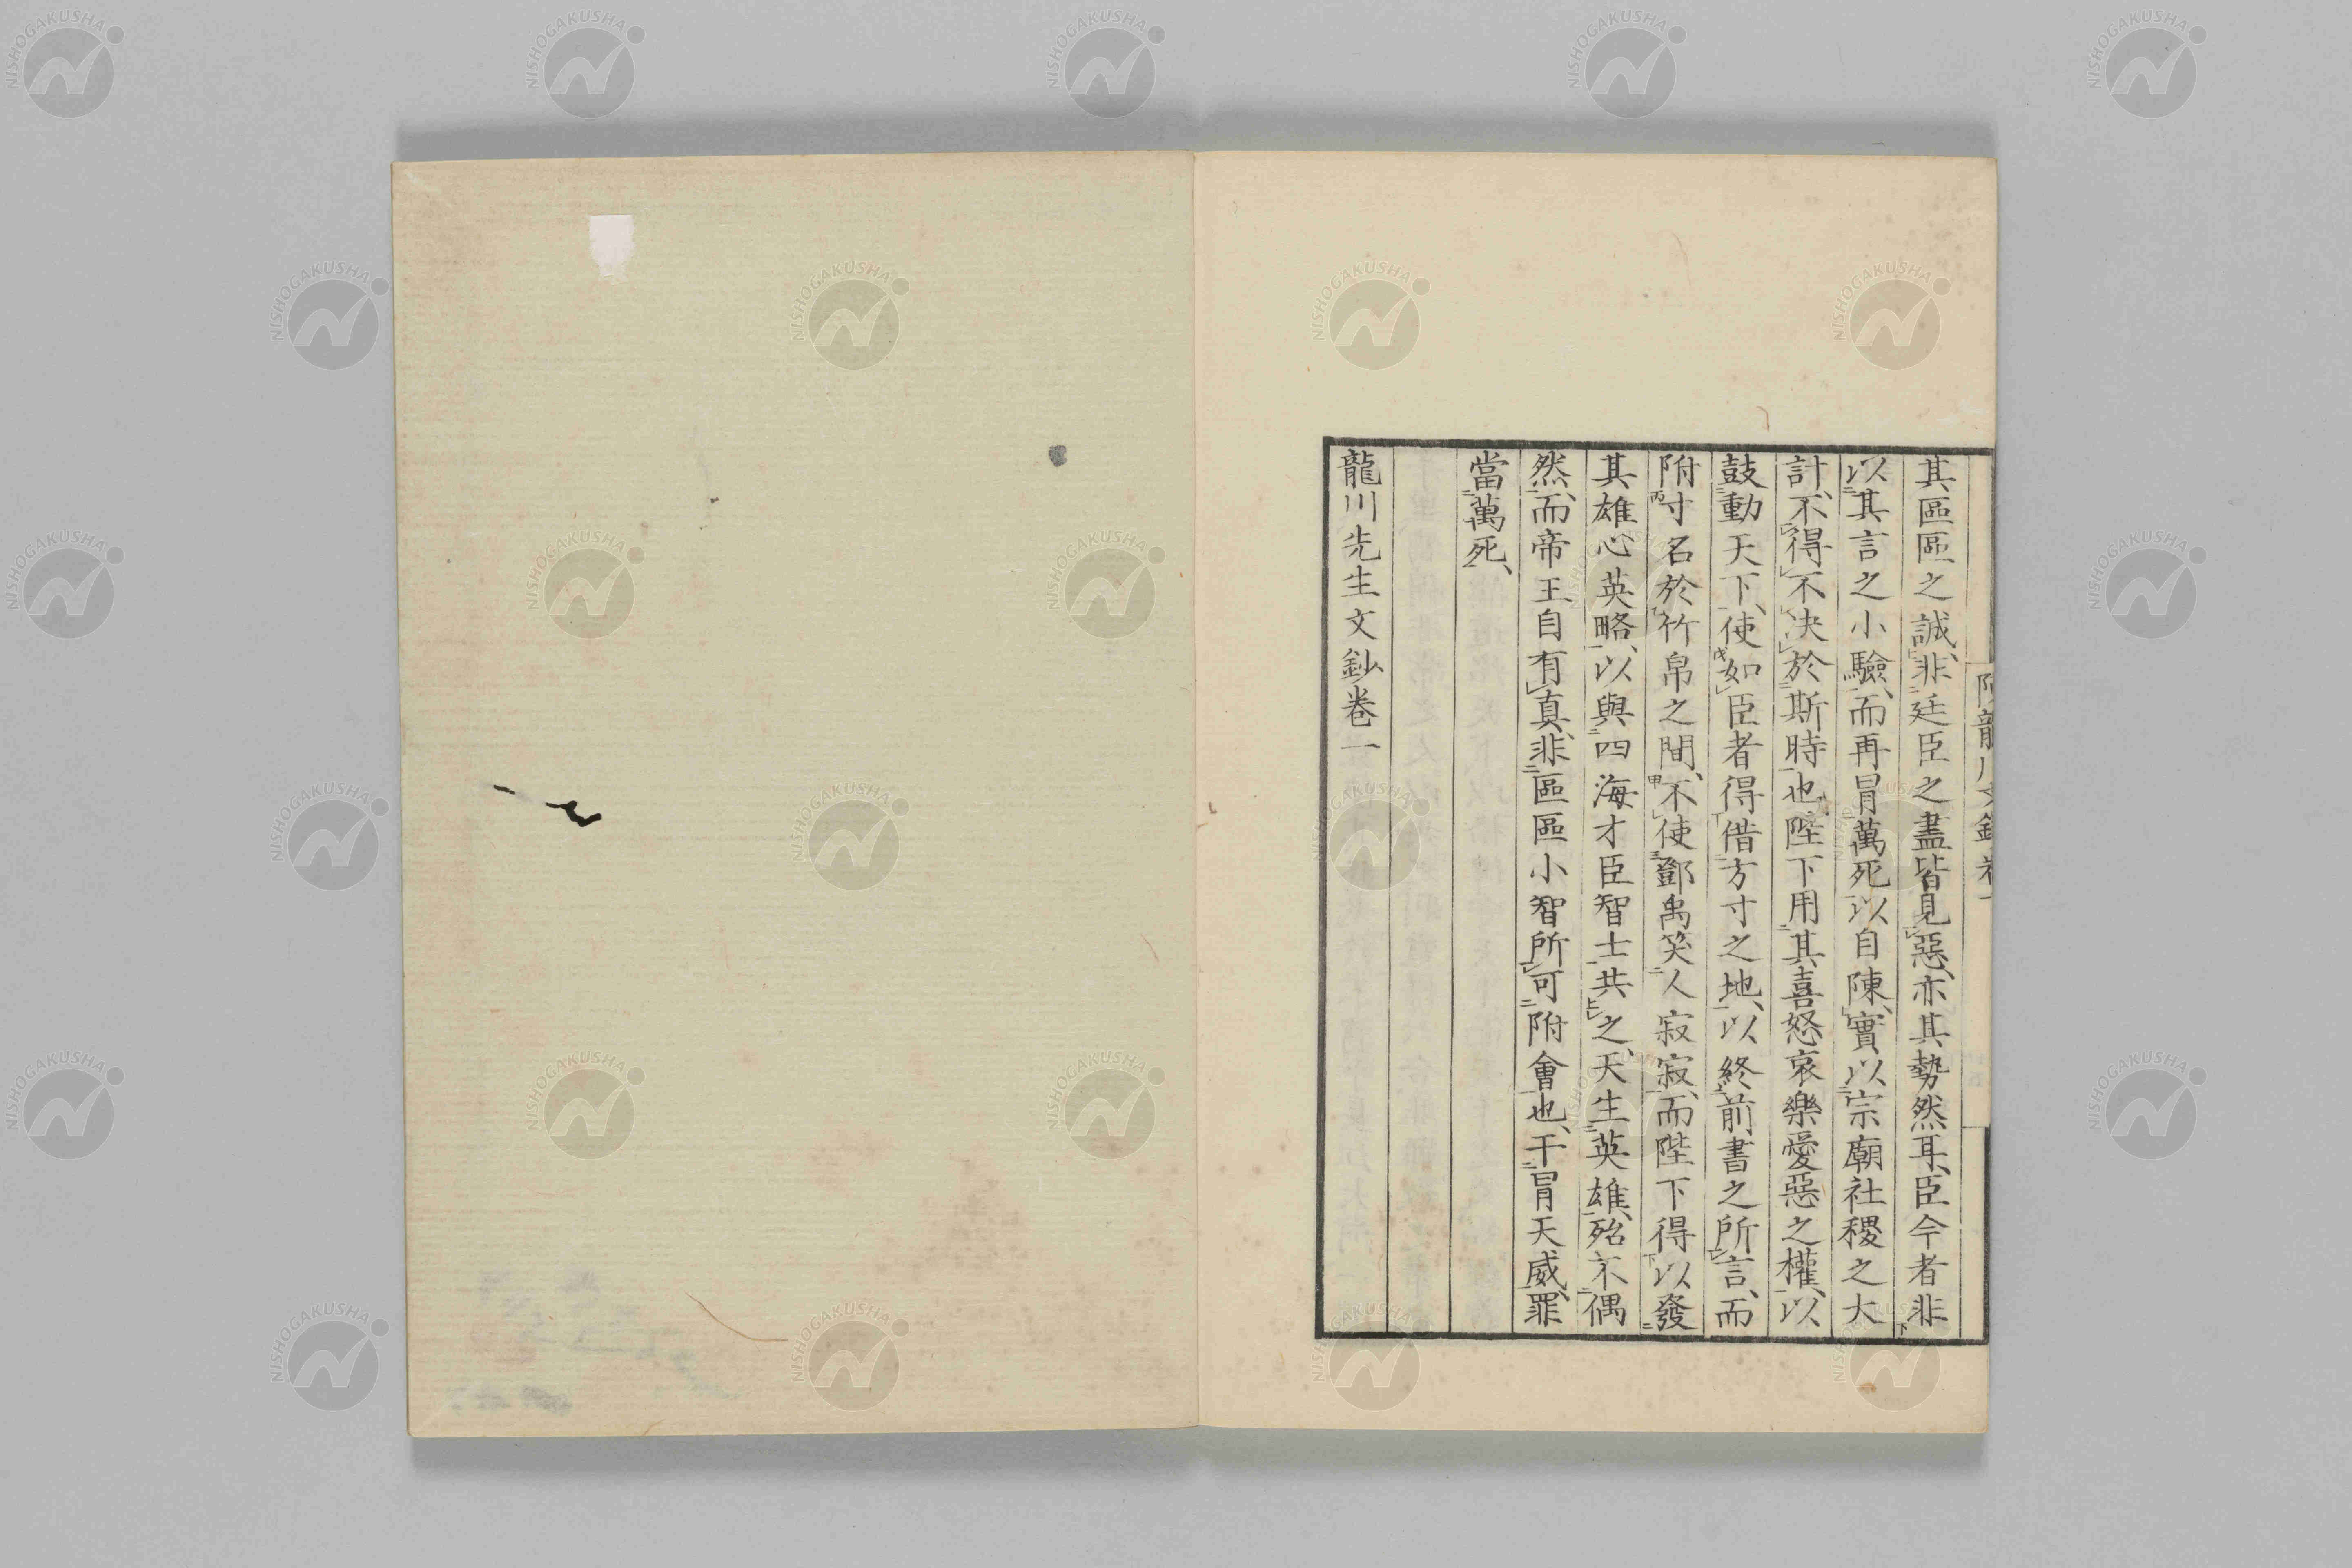 其區區之誠、非廷臣之盡皆見惡、亦其勢然耳、臣今者非
以其言之小驗、而再冒萬死以自陳、實以宗廟社稷之大
計、不得不决於斯時也、陛下用其喜怒哀樂愛惡之權、以
鼓動天下、使如臣者得借方寸之地、以終前書之所言、而
附寸名於竹帛之間、不使鄧禹笑人寂寂、而陛下得以發
其雄心英略、以與四海才臣智士共之、天生英雄、殆不偶
然、而帝王自有真、非區區小智所可附會也、干冒天威、罪
當萬死、
龍川先生文鈔卷一
NISHOGAKUSHA